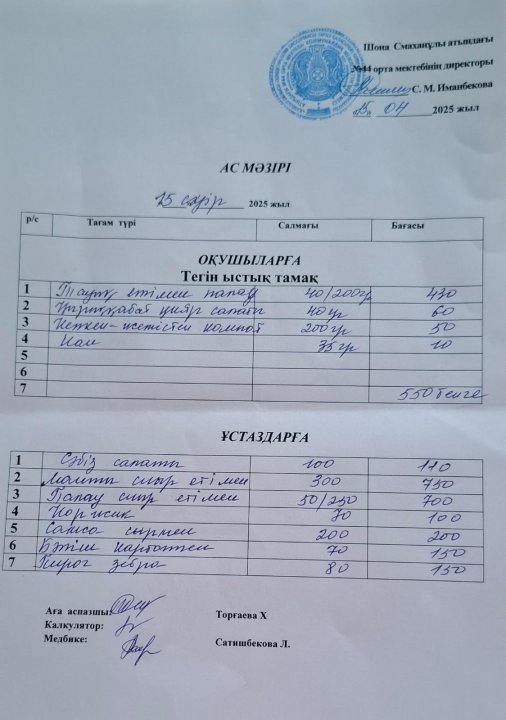 Шона Смаханұлы атындағы
№44 орта мектебінің директоры
С. М. Иманбекова
«15» 04 2025 жыл
АС МӘЗІРІ
15 сәуір 2025 жыл
р/с Тағам түрі Салмағы Бағасы
ОҚУШЫЛАРҒА
Тегін ыстық тамақ
1 Тауық етімен палау 40/200гр 430
2 Қырыққабат қияр салаты 40гр 60
3 Кепкен-жемістен компот 200гр 50
4 Нан 35гр 10
5
6
7 550 тенге
ҰСТАЗДАРҒА
1 Сәбіз салаты 100 110
2 Манты сиыр етімен 300 750
3 Палау сиыр етімен 50/250 700
4 Коржик 70 100
5 сырмен 200 200
6 Бәтіш картоппен 70 150
7 Пирог зебра 80 150
Аға аспазшы: Торғаева Х
Калкулятор:
Медбике: Сатишбекова Л.